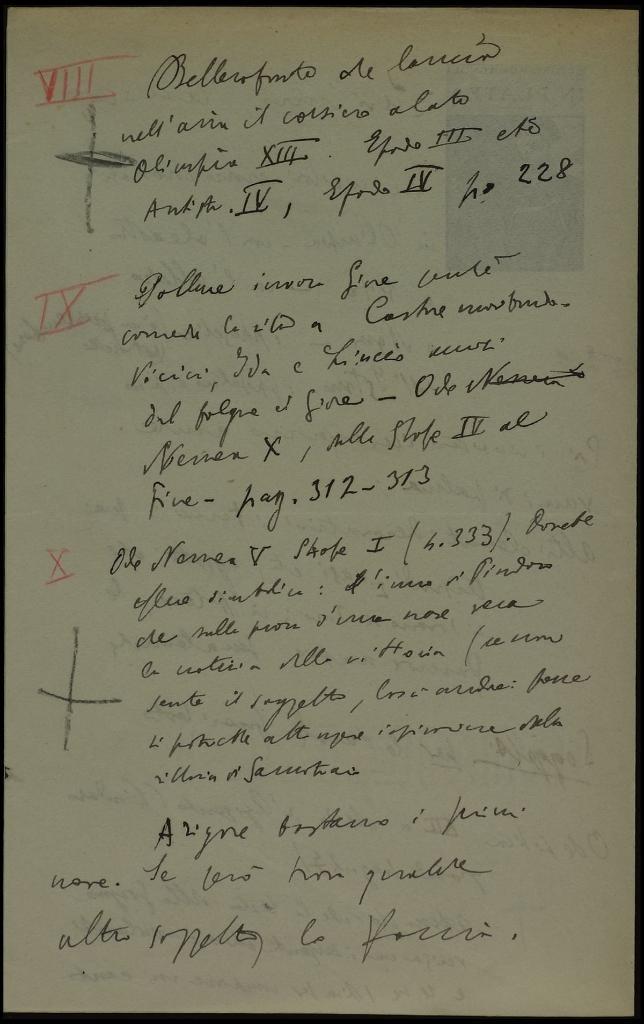 VIII Bellerofonte che lancia
nell'aria il corsiero alato
Olimpia XIII. Epodo III
Antistr. IV, Epodo IV p. 228
IX Polluce invoca Giove
la vita a Castore moribondo -
Vicini, Ida e Linceo
dal folgore di Giove - Ode Nemea
Nemea X, dalla Strofe IV al
Fine - pag. 312-313
X Ode Nemea V Strofe I (p. 333). Dovrebbe
essere simbolica: l'inno di Pindaro
che sulla prora d'una nave reca
la notizia della vittoria (se non
sente il soggetto, lasci andare: forse
si potrebbe attingere ispirazione dalla
vittoria di Samotracia
A rigore bastano i primi
nove. Se però trova qualche
altro soggetto, lo faccia.